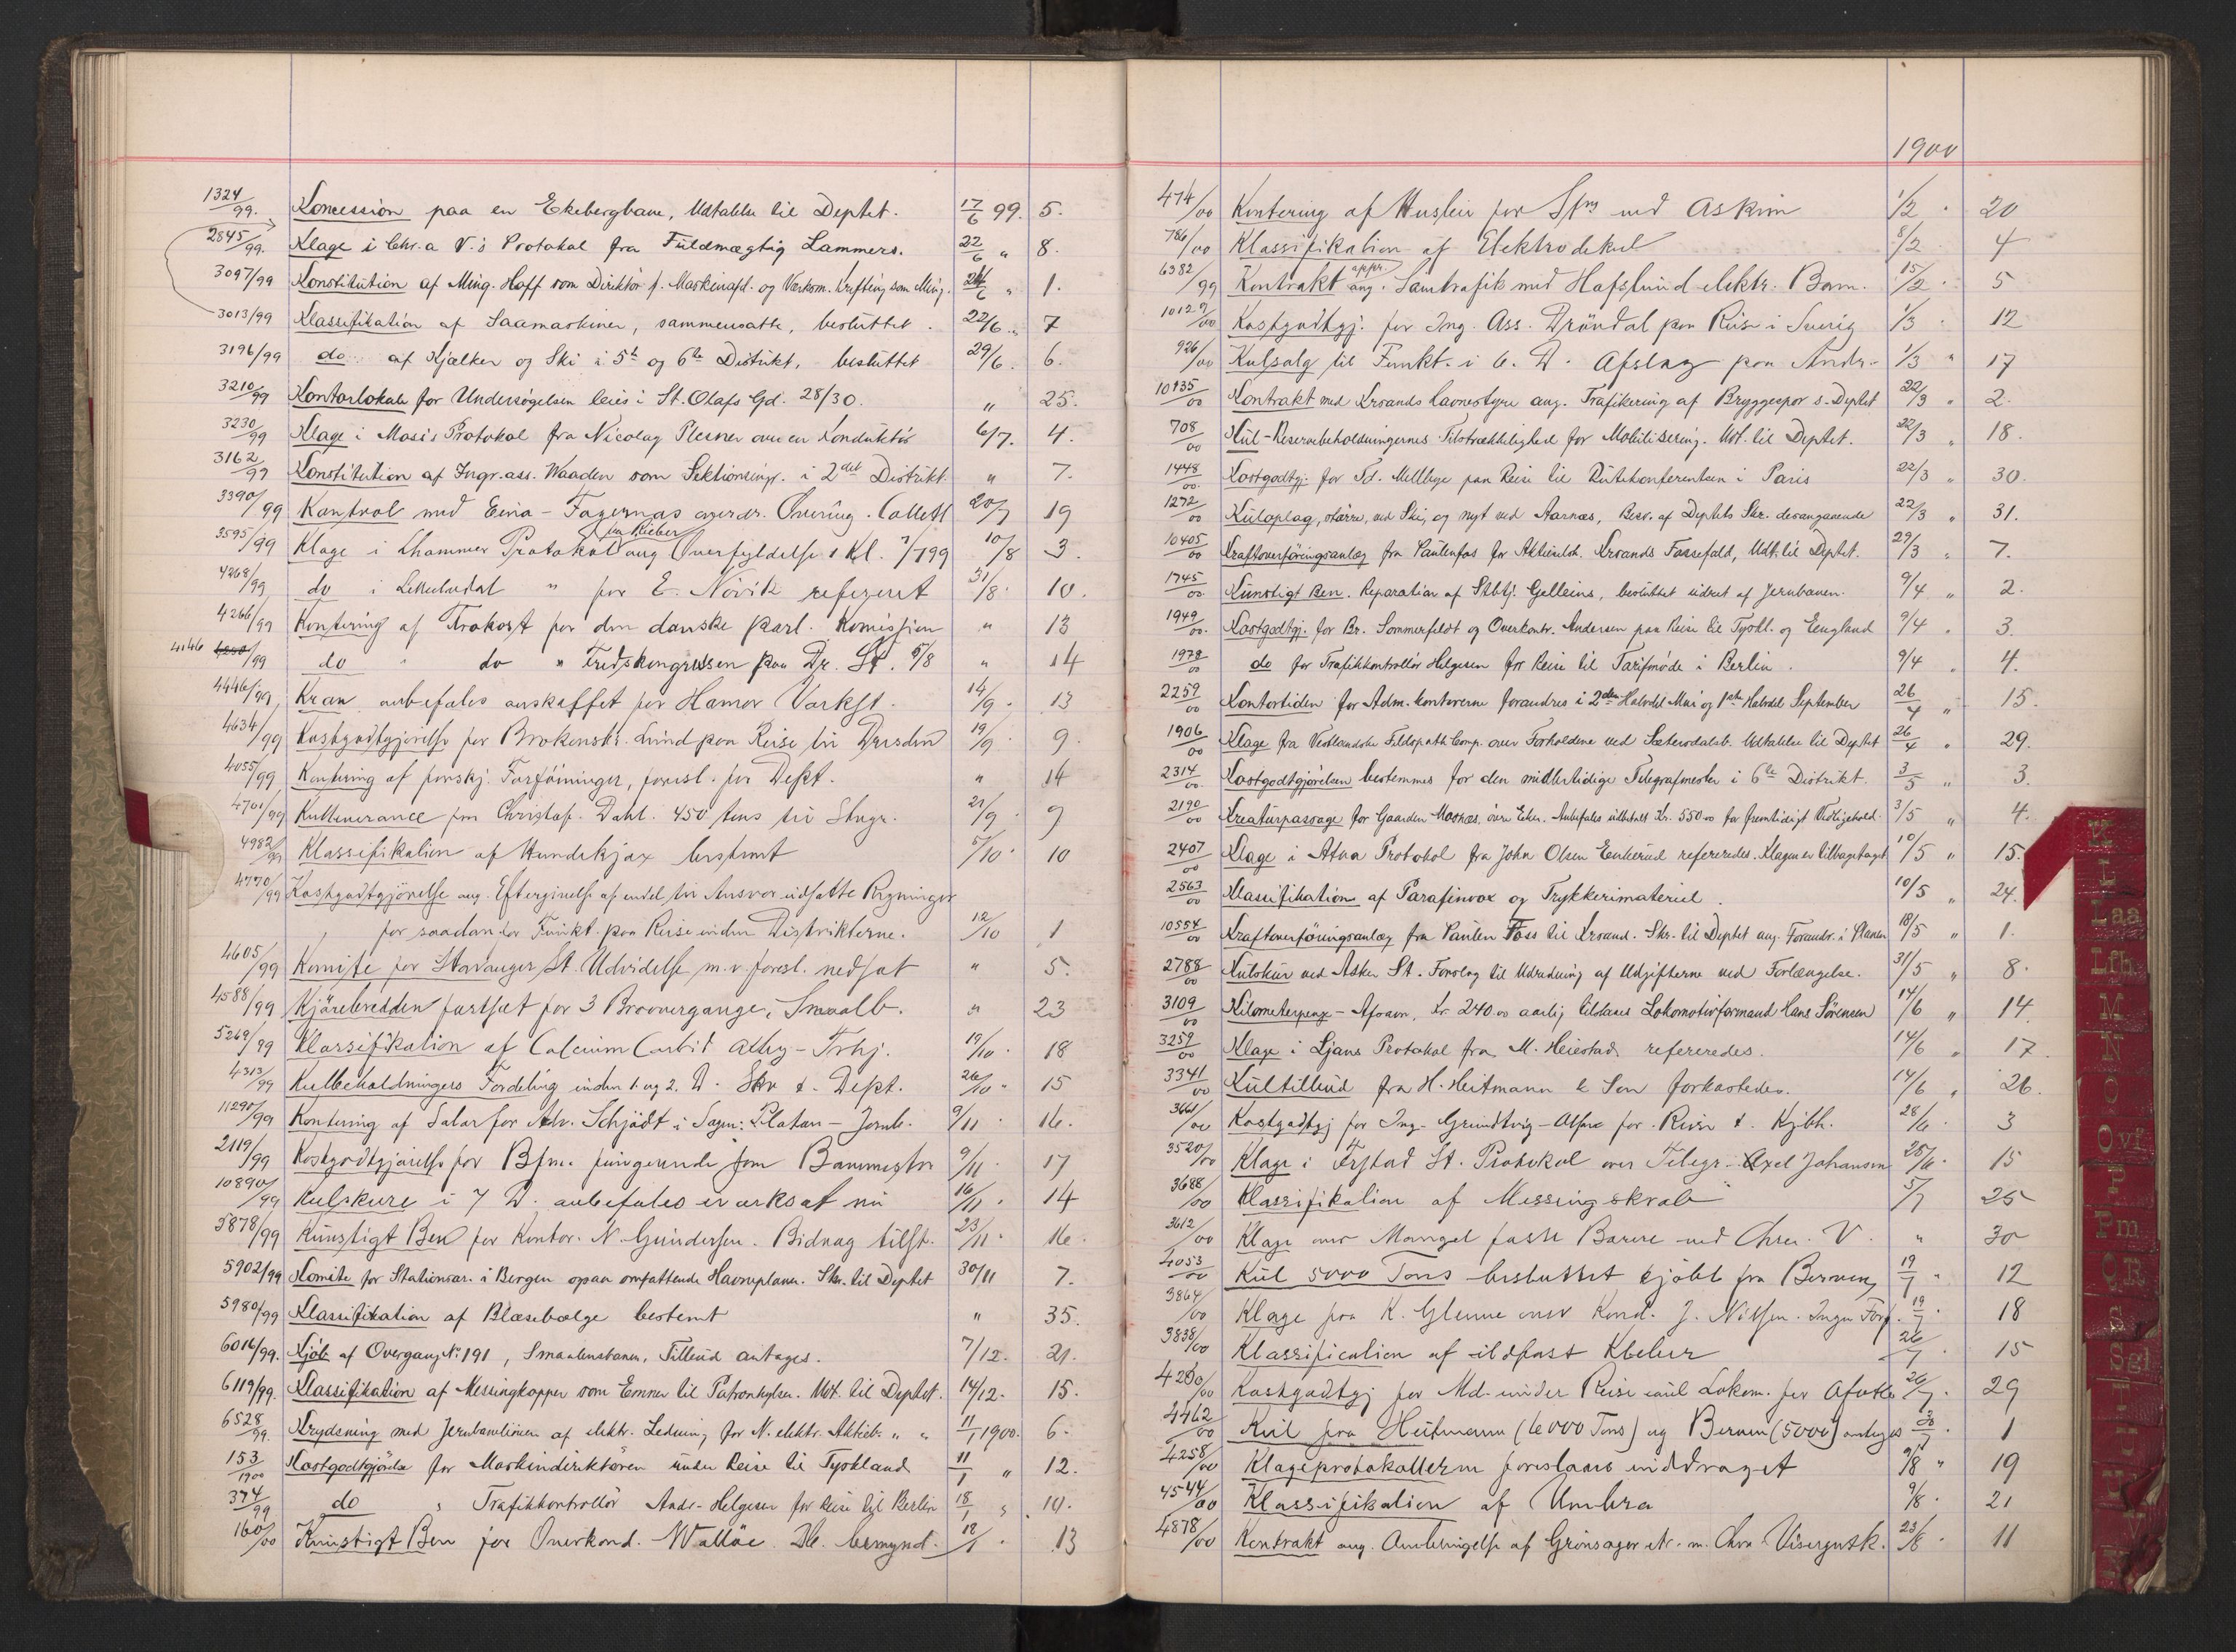 1324/99. Koncession paa en Ekebergbane, Udtalelse til Deptet. 17/6 99. 5.
2845/99. Klage i Chr.a V.s Protokol fra Fuldmægtig Lammers. 22/6 " 8.
3097/99 Konstitution af Ming. Hoff som Direktör f. Maskinafd. og Værksm. Krefting som Ming. 6 " 1.
3013/99 Klassifikation af Saamaskiner, sammensatte, besluttet. 22/6 " 7
3196/99 do af Kjælker og Ski i 5te og 6te Distrikt, besluttet 29/6. 6.
3210/99 Kontorlokale for Undersögelsen leies i St. Olafs Gd. 28/30. " 25.
3230/99 Klage i Moss's Protokol fra Nicolay Plesner over en Konduktör 6/7. 4.
3162/99 Konstitution af Ingr.ass. Waaden som Sektionsingr. i 2det Distrikt " 7.
3390/99 Kontrol med Eina - Fagernæs overdr. Overing. Collett 20/7 19
3595/99 Klage i Lhammer Protokol fra Rieber ang Overfyldelse 1 Kl. 2/7 99 10/8 3.
4268/99 do i " for E. Növik refereret 31/8. 10.
4266/99 Kontering af Frokost for den danske parl. Komission " 13
4146 4250/99 do " do " Fredskongressen paa Dr. St. 5/8 " 14
4446/99 Kran anbefales anskaffet for Hamar Værkst. 14/9. 13
4634/99 Kostgodtgjörelse for Brokonstr. Lund paa Reise til Dresden 19/9. 9.
4055/99 Kontering af forskj. Forföininger, foresl. for Dept. " 14
4701/99 Kulleverance fra Christof. Dahl. 450 tons til Stngr. 21/9. 9
4982/99 Klassifikation af Hundekjæx bestemt 5/10. 10
4770/99 Kostgodtgjörelse ang. Eftergivelse af endel til Ansvar udsatte Regninger
for saadan for Funkt. paa Reise inden Distrikterne. 12/10 1
4605/99 Komite for Stavanger St. Udvidelse m.v. foresl. nedsat " 5.
4588/99 Kjörebredden fastsat for 3 Broovergange, Smaalb. " 23
5269/99 Klassifikation af Calcium Carbid 19/10. 18
4313/99 Kulbeholdningers Fordeling inden 1. og 2. D. Skr t. Dept. 26/10 " 15
11290/99 Kontering af Salær for Adv. Schjödt i Sagen: Platou - Jernb. 9/11 16.
2119/99 Kostgodtgjörelse for Bfm. fungerende som Banemester 9/11. 17
10890/99 Kulskure i 7 D. anbefales iværksat nu 16/11. 14
5878/99 Kunstigt Ben for Kontor. N. Gundersen. Bidrag tilst. 23/11. 16.
5902/99 Komite for Stationsar. i Bergen ogsaa omfattende Havneplanen. Skr. til Deptet 30/11 7.
5980/99 Klassifikation af Blæsebælge bestemt " 35.
6016/99. Kjöb af Overgang No. 191, Smaalensbanen, Tilbud antages. 7/12. 21.
6119/99. Klassifikation af Messingkopper som Emner til Patronhylser. Udt. til Deptet. 14/12. 15.
6528/99. Krydsning med Jernbanelinien af elektr. Ledning for N. elektr. Aktieb. " " 11/1 1900. 6.
153/1900 Kostgodtgjörelse for Maskindirektören under Reise til Tyskland 11/1 " 12.
374/99 do " Trafikkontrollör Ande-Helgesen for Reise til Berlin 18/1 " 10.
160/00 Kunstigt Ben for Overkond. Wallöe. Db. bemynd. 18/1. 13
1900
474/00 Kontering af Husleie for Stm ved Askim 1/2. 20
786/00 Klassifikation af Elektrodekul 8/2 4
6382/99 Kontrakt appr. ang. Samtrafik med Hafslund elektr. Bane. 15/2. 5
10129/00 Kostgodtgj. for Ing. Ass. Dröndal paa Reise i Sverig 1/3. 12
926/00 Kulsalg til Funkt. i 6. D. Afslag paa 1/3 " 17
10135/00 Kontrakt med Krsands havnestyre ang. Trafikering af Bryggespor s. Deptet 22/3 " 2.
708/00 Kul-Reservebeholdningernes Tilstrækkelighed for Mobilisering. Udt. til Deptet. 22/3 " 18.
1448/00. Kostgodtgj. for Td. Mellbye paa Reise til Rutekonferentsen i Paris 22/3 " 30.
1272/00 Kuloplag, större, ved Ski, og nyt ved Aarnæs, Besv. af Deptets Skr. desangaaende 22/3 " 31.
10405/00 Kraftoverföringsanlæg fra Paulenfos for Aktieselsk. Krsands Fossefald, Udt. til Deptet. 29/3 " 7.
1745/00. Kunstigt Ben. Reparation af Stbtj. Gelleins, besluttet udredet af Jernbanen. 9/4 " 2.
1949/00. Kostgodtgj. for Br. Sommerfeldt og Overkontr. Andersen paa Reise til Tyskl. og England 9/4 " 3.
1978/00 do for Trafikkontrollör Helgesen for Reise til Tarifmöde i Berlin. 9/4 " 4.
2259/00 Kontortiden for Adm.kontorerne forandres i 2den Halvdel Mai og 1ste Halvdel September 26/4 " 15.
1906/00 Klage fra Vestlandske Feldspath Comp. over Forholdene ved Sætersdalsb. Udtalelse til Deptet 26/4 " 29.
2314/00. Kostgodtgjörelsen bestemmes for den midlertidige Telegrafmester i 6te Distrikt. 3/5 " 3.
2190/00 Kreaturpassage for Gaarden Mosnæs, övre Eker. Anbefales udbetalt Kr. 550.00 for fremtidigt Vedligehold. 3/5 " 4.
2407/00 Klage i Atna Protokol fra John Olsen Enkerud refereredes. Klagen er tilbagetaget 10/5 " 15.
2563/00 Klassifikation af Parafinvox og Trykkerimateriel. 10/5 " 24.
10554/00 Kraftoverföringsanlæg fra Paulen Foss til Krsand. Skr. til Deptet ang. Forandr. i Planen 18/5 " 1.
2788/00 Kulskur ved Asker St. Forslag til Udredning af Udgifterne ved Forlængelse. 31/5 " 8.
3109/00 Kilometerpenge - Afsavn, Kr. 240.00 aarlig tilstaaes Lokomotivformand Hans Sörensen 14/6 " 14.
3259/00 Klage i Ljans Protokol fra M. Heiestad refereredes. 14/6 " 17.
3341/00 Kultilbud fra H. Heitmann & Sön forkastedes. 14/6 " 26.
3661/00 Kostgodtgj for Ing. Grundtvig for Reise t. Kjbh. 28/6. 3
3520/00 Klage i St. Protokol over Telegr. Axel Johansen 28/6. 15
3688/00 Klassifikation af Messingskrab 5/7 25
3612/00 Klage over Mangel paa Barere ved Chra. V. " 30
4053/00 Kul 5000 Tons besluttet kjöbt fra Berven, 19/7 " 12
3864/00 Klage fra K. Glenne over Kond. J. Nilsen. Ingen Forf. 19/7. 18
3838/00 Klassification af ildfast Kleber 26/7. 15
4200/00 Kostgodtgj for Md. under Reise Lokom. 26/7. 29
4462/00 Kul fra Heitmann (6000 Tons) og Berven (5000) antages 30/7. 1
4258/00 Klageprotokollerne foreslaaes inddraget 9/8 " 19
4544/00 Klassifikation af Umbra 9/8. 21
4878/00 Kontrakt ang. Anbringelse af Grönsager etc. m. Chra Visergutk. 23/8. 11
K
L
Laa
Lfh
M
N
O
Ovf
P
Pm
QR
S
Sgl